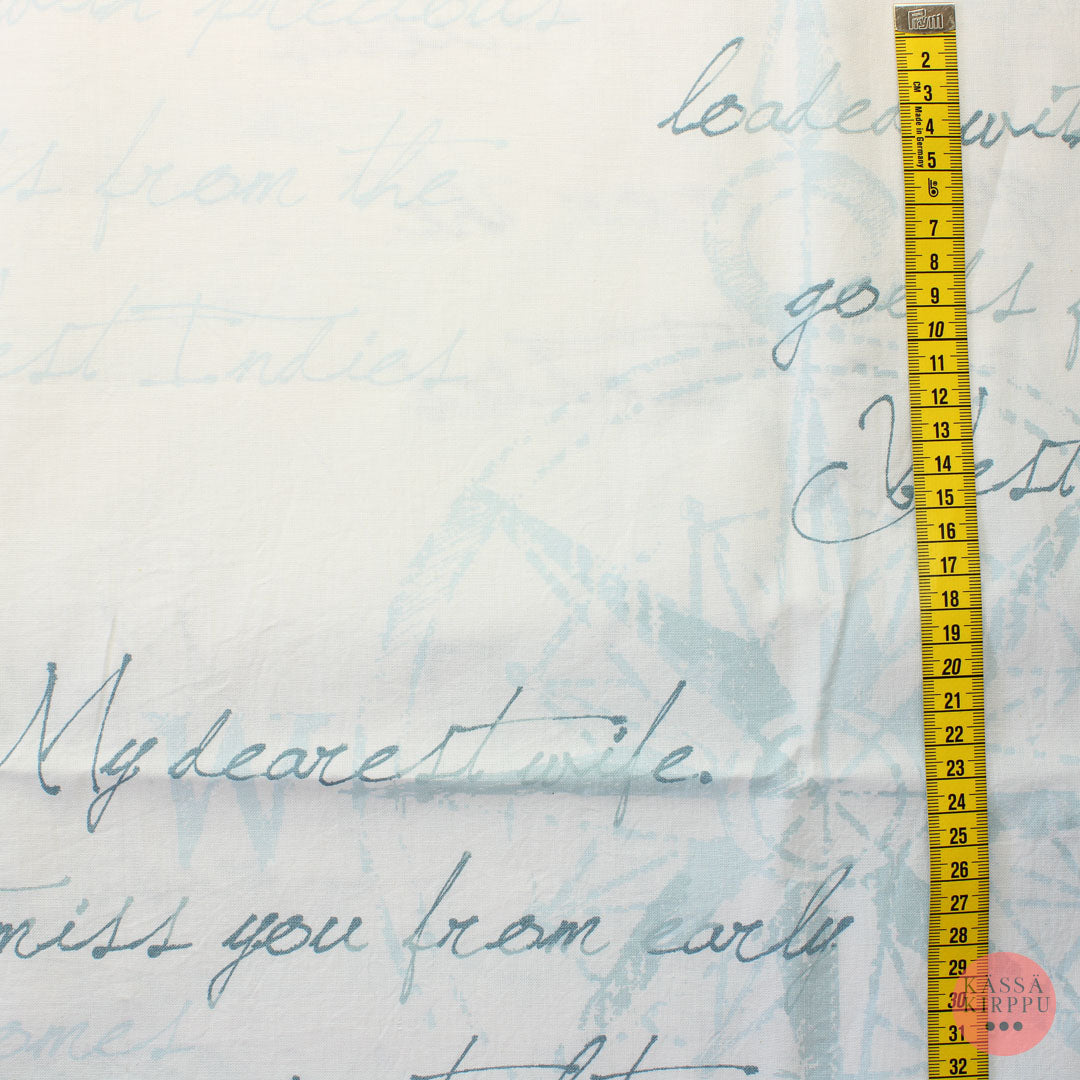 with precious
loaded with
from the
goods
West Indies
West
My dearest wife.
miss you from early
Prym
2
CM
3
Made in Germany
4
5
6
7
8
9
10
11
12
13
14
15
16
17
18
19
20
21
22
23
24
25
26
27
28
29
30
31
32
KÄSSÄ
KIRPPU